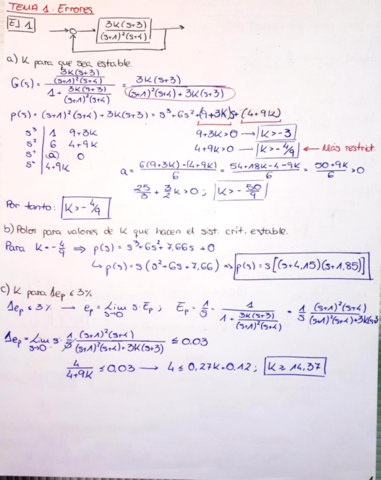 TEMA 1. Errores
EJ. 1
3K(s+3)
(s+1)²(s+4)
a) K para que sea estable.
G(s) = 3K(s+3)/(s+1)²(s+4) / 1 + 3K(s+3)/(s+1)²(s+4) = 3K(s+3) / (s+1)²(s+4) + 3K(s+3)
p(s) = (s+1)²(s+4) + 3K(s+3) = s³ + 6s² + (9+3K)s + (4+9K)
s³ | 1 9+3K
9+3K>0 → K>-3
s² | 6 4+9K
4+9K>0 → K>-4/9 ← Más restrict.
s¹ | a 0
a = 6(9+3K)-(4+9K) / 6 = 54+18K-4-9K / 6 = 50+9K / 6 > 0
s⁰ | 4+9K
25/3 + 3/2 K>0 ; K>-50/9
Por tanto: K>-4/9
b) Polos para valores de K que hacen el sist. crít. estable.
Para K=-4/9 ⇒ p(s) = s³+6s²+7,66s+0
↳ p(s) = s(s²+6s+7,66) ⇒ p(s) = s[(s+4,15)(s+1,85)]
c) K para Δep ≤ 3%
Δep ≤ 3% → ep = Lim s→0 s·Ep ; Ep = 1/s · 1 / 1 + 3K(s+3)/(s+1)²(s+4) = 1/s (s+1)²(s+4) / (s+1)²(s+4)+3K(s+3)
Δep = Lim s→0 s · 1/s (s+1)²(s+4) / (s+1)²(s+4)+3K(s+3) ≤ 0.03
4 / 4+9K ≤ 0,03 → 4 ≤ 0,27K+0.12 ; K ≥ 14,37